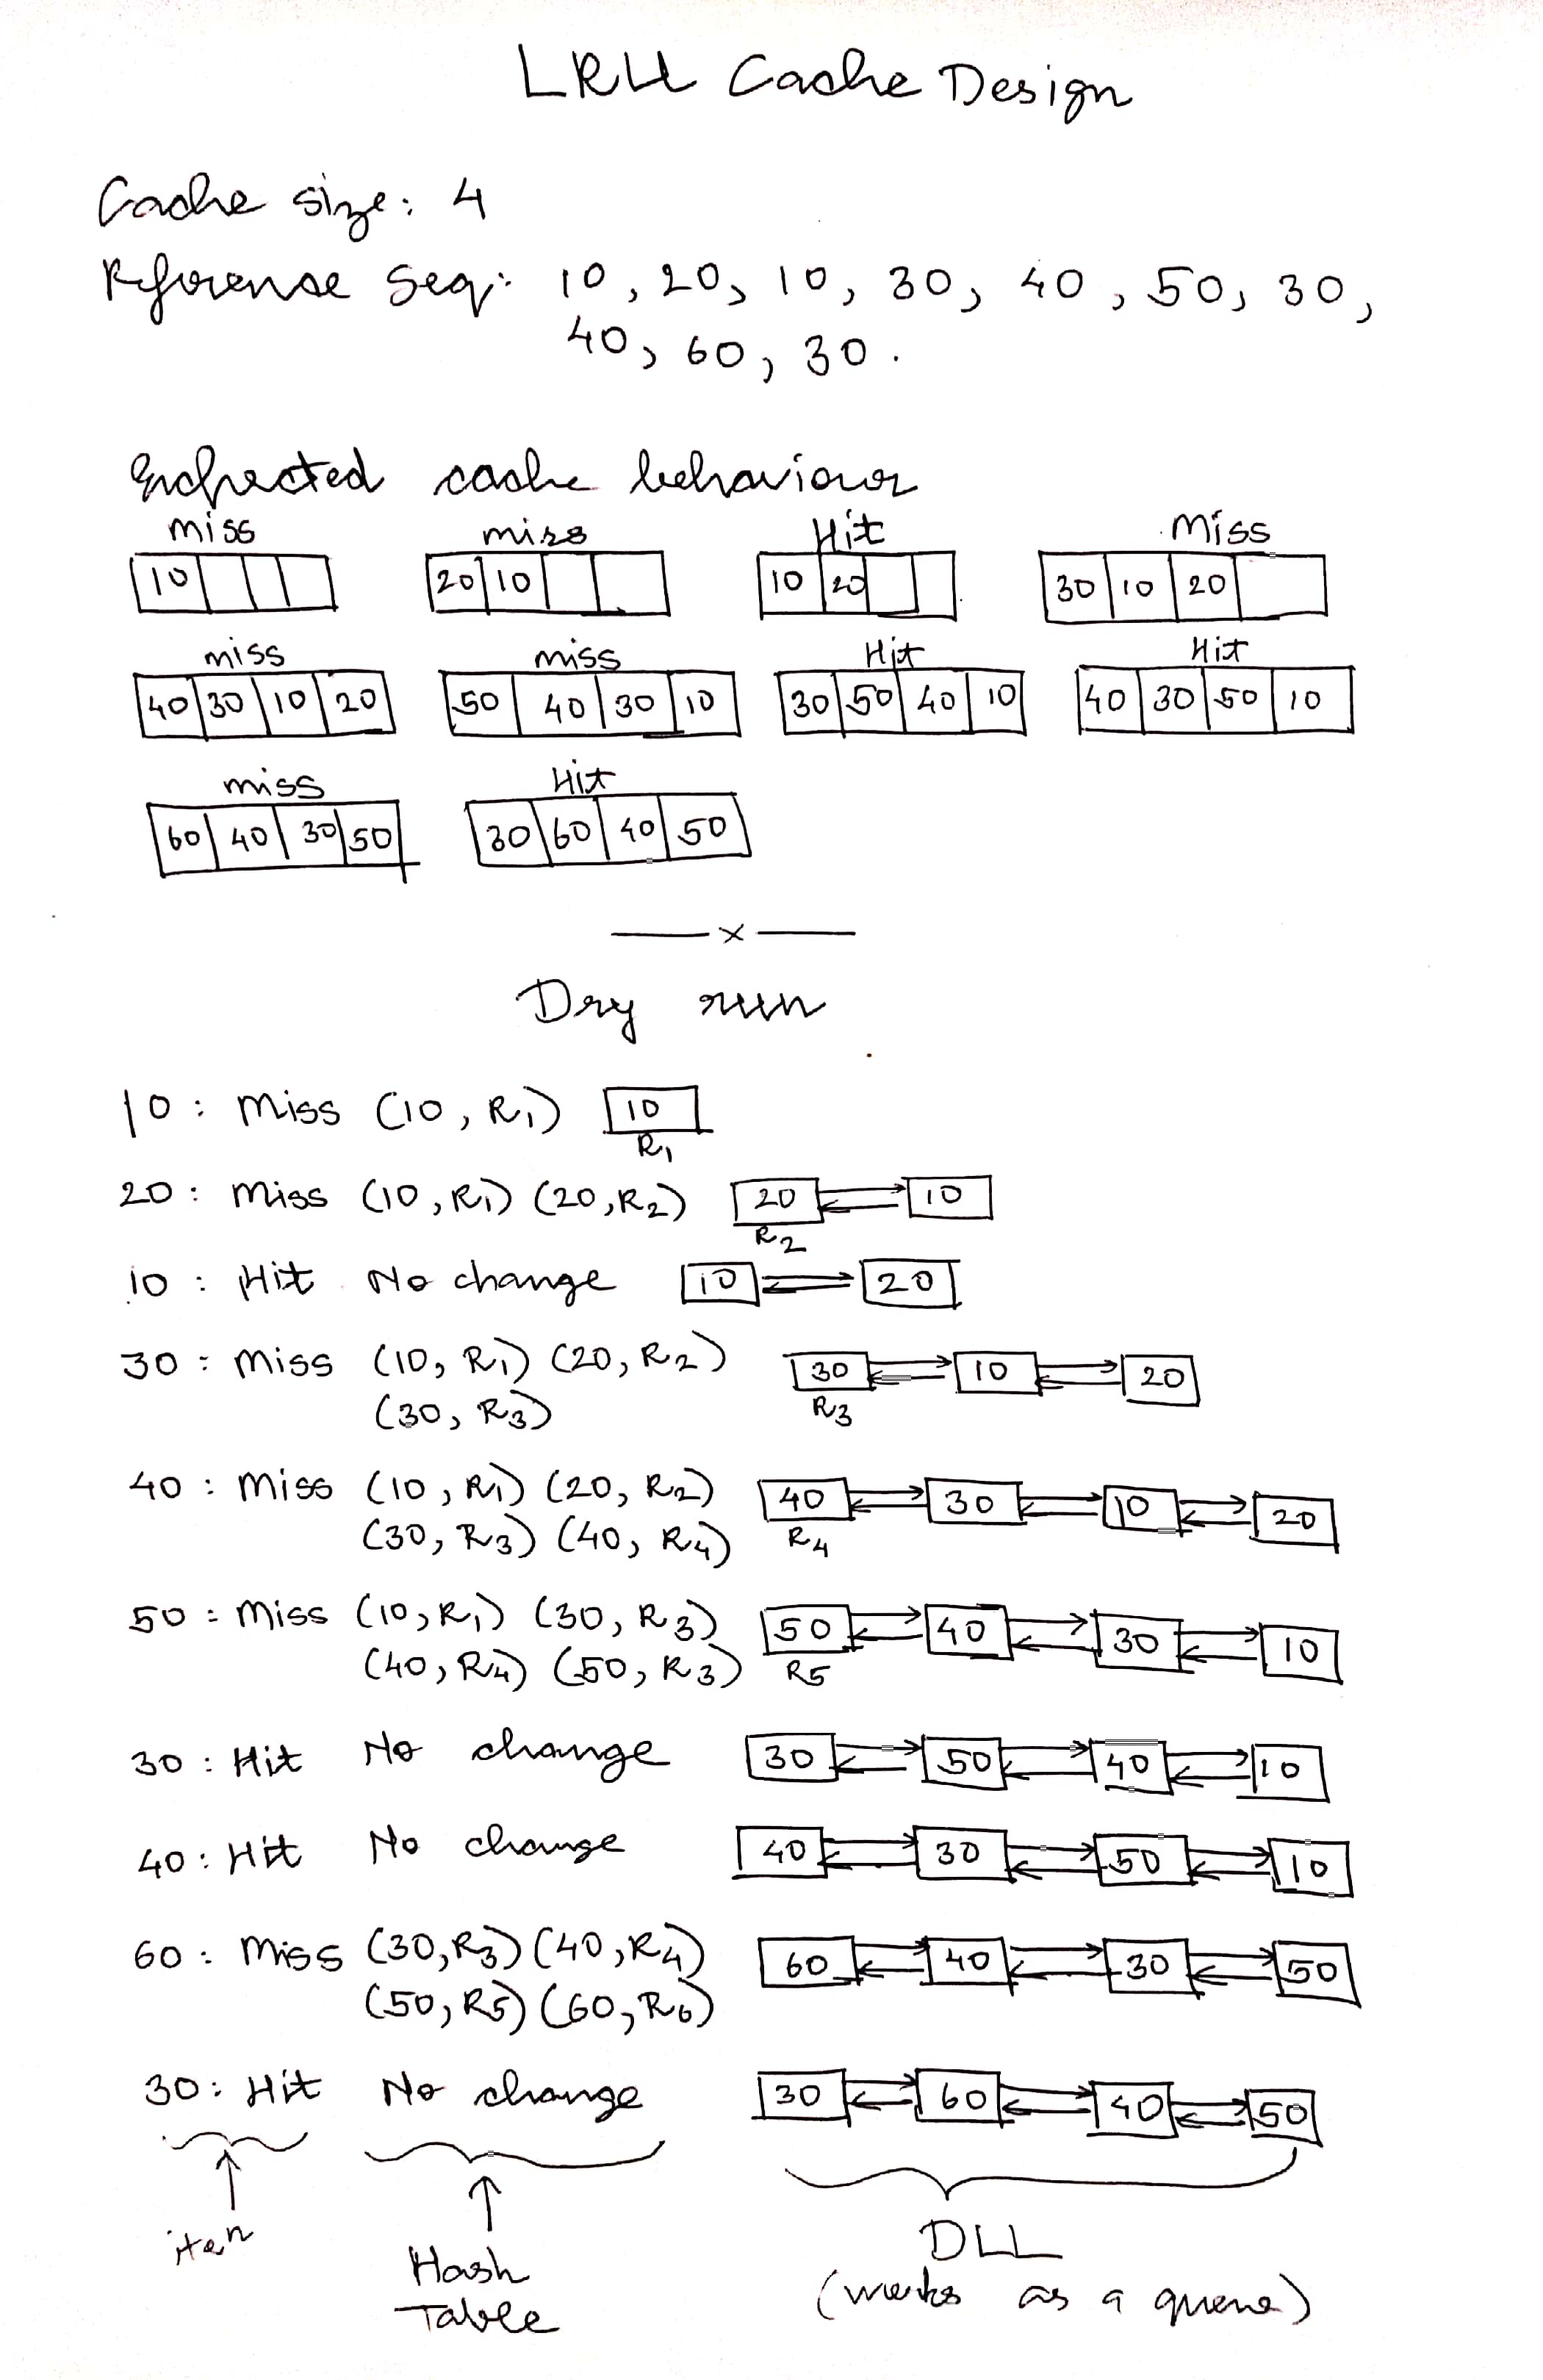 LRU Cache Design
Cache size: 4
Reference Seq: 10, 20, 10, 30, 40, 50, 30,
40, 60, 30.
Expected cache behaviour
miss miss Hit Miss
10 20 10 10 20 30 10 20
miss miss Hit Hit
40 30 10 20 50 40 30 10 30 50 40 10 40 30 50 10
miss Hit
60 40 30 50 30 60 40 50
x
Dry run
10: Miss (10, R1) 10
R1
20: Miss (10, R1) (20, R2) 20 10
R2
10: Hit No change 10 20
30: Miss (10, R1) (20, R2) 30 10 20
(30, R3) R3
40: Miss (10, R1) (20, R2) 40 30 10 20
(30, R3) (40, R4) R4
50: Miss (10, R1) (30, R3) 50 40 30 10
(40, R4) (50, R3) R5
30: Hit No change 30 50 40 10
40: Hit No change 40 30 50 10
60: Miss (30, R3) (40, R4) 60 40 30 50
(50, R5) (60, R6)
30: Hit No change 30 60 40 50
item
Hash
Table
DLL
(works as a queue)